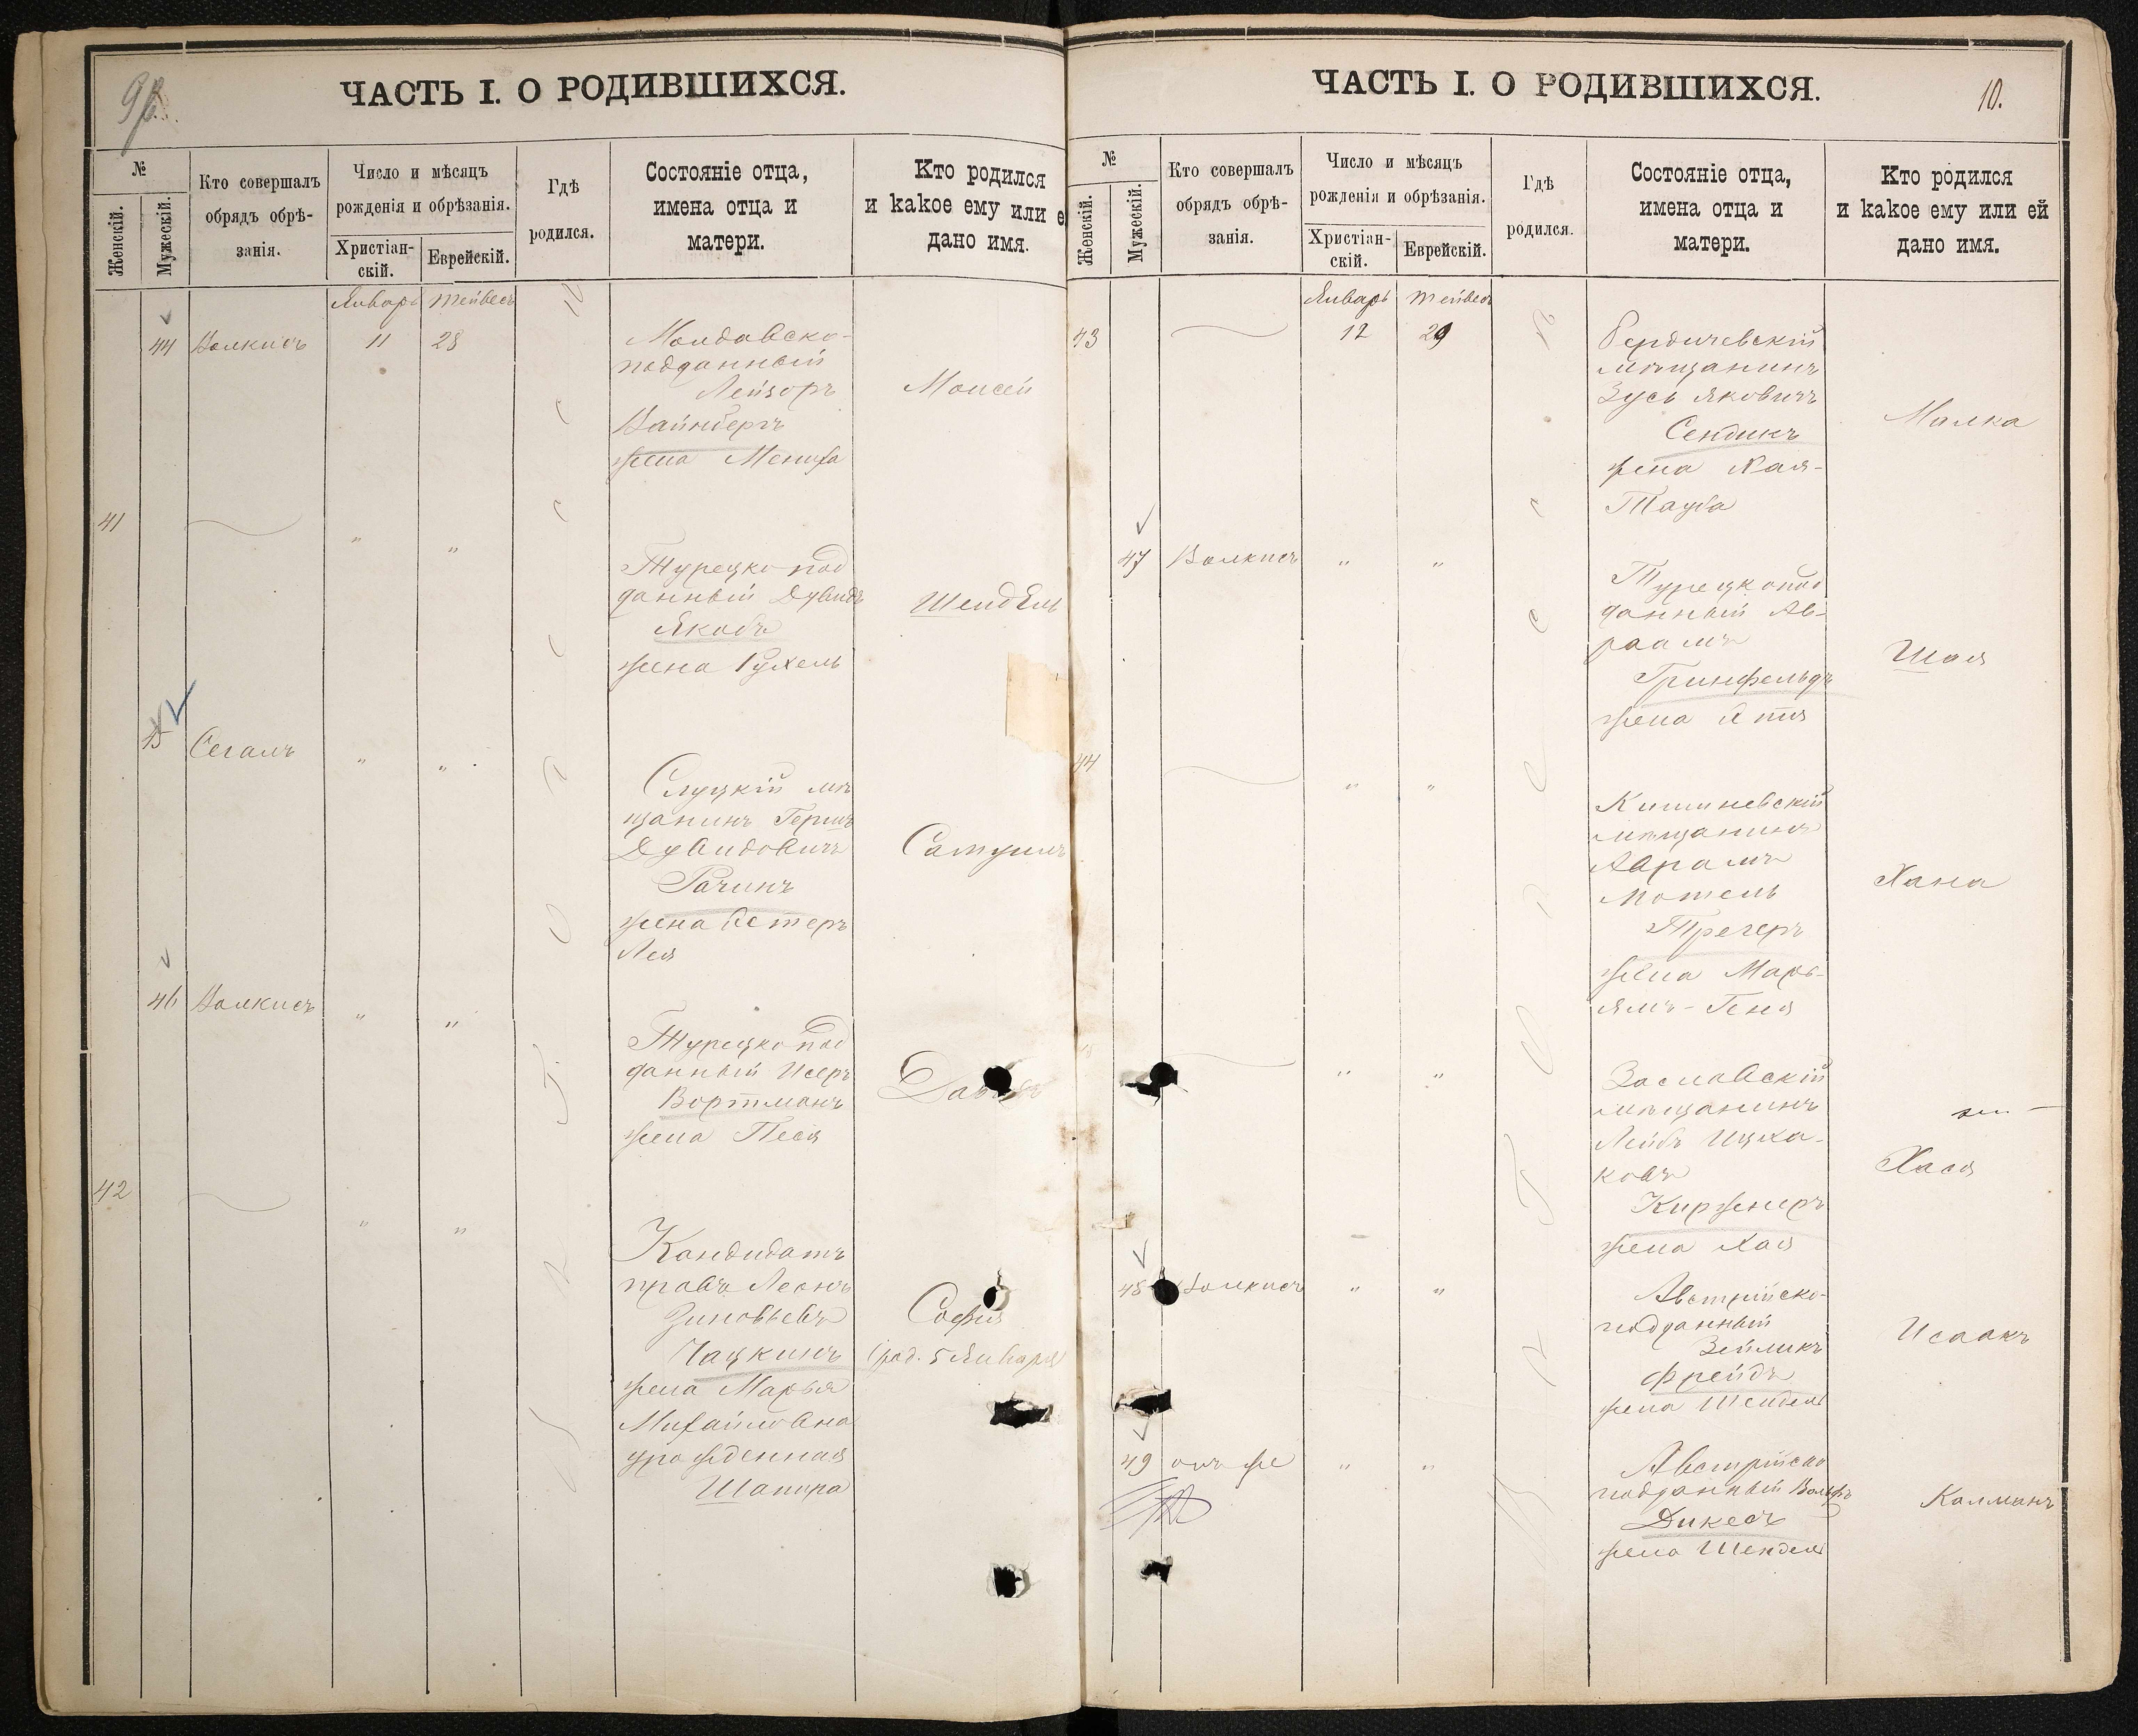 ЧАСТЬ I. О РОДИВШИХСЯ.
№
Женскій.
Мужескій.
Кто совершалъ
обрядъ обрѣ-
занія.
Число и мѣсяцъ
рожденія и обрѣзанія.
Христіан-
скій.
Еврейскій.
Гдѣ
родился.
Состояніе отца,
имена отца и
матери.
Кто родился
и какое ему или е
дано имя.
Январь Тейвесъ
44 Волкисъ 11 28
Молдавско-
подданный
Лейзоръ
Вайнбергъ
жена Мениха
Моисей
41 " "
Турецко под
данный Дувидъ
Якобъ
жена Рухель
Шендель
45 Сегалъ " "
Слуцкій мѣ
щанинъ Гершъ
Дувидовичъ
Рачинъ
жена Естеръ
Лея
Самуилъ
46 Волкисъ " "
Турецко под
данный Исеръ
Вортманъ
жена Песя
42 " "
Кандидатъ
правъ Леонъ
Зиновьевъ
Чацкинъ
жена Марья
Михайловна
урожденная
Шапира
София
(род. 5 Января
ЧАСТЬ I. О РОДИВШИХСЯ.
10.
№
Женскій.
Мужескій.
Кто совершалъ
обрядъ обрѣ-
занія.
Число и мѣсяцъ
рожденія и обрѣзанія.
Христіан-
скій.
Еврейскій.
Гдѣ
родился.
Состояніе отца,
имена отца и
матери.
Кто родился
и какое ему или ей
дано имя.
Январь Тейвесъ
43 12 29
Бердичевскій
мѣщанинъ
Зусь Яковичъ
Сендикъ
жена Хая-
Тауба
Малка
47 Волкисъ " "
Турецкопод
данный Ав-
раамъ
Гринфельдъ
жена Етя
Шая
44 " "
Кишиневскій
мѣщанинъ
Аврамъ
Мотель
Трегеръ
жена Марь-
ямъ-Геня
Хана
" "
Заславскій
мѣщанинъ
Лейбъ Ицха-
ковъ
Киржнеръ
жена Хая
Хася
48 Волкисъ " "
Австрійско-
подданный
Зейликъ
Фрейдъ
жена Шендель
Исаакъ
49 онъ же " "
Австрійско
подданный Вольфъ
Дикесъ
жена Шендель
Калманъ